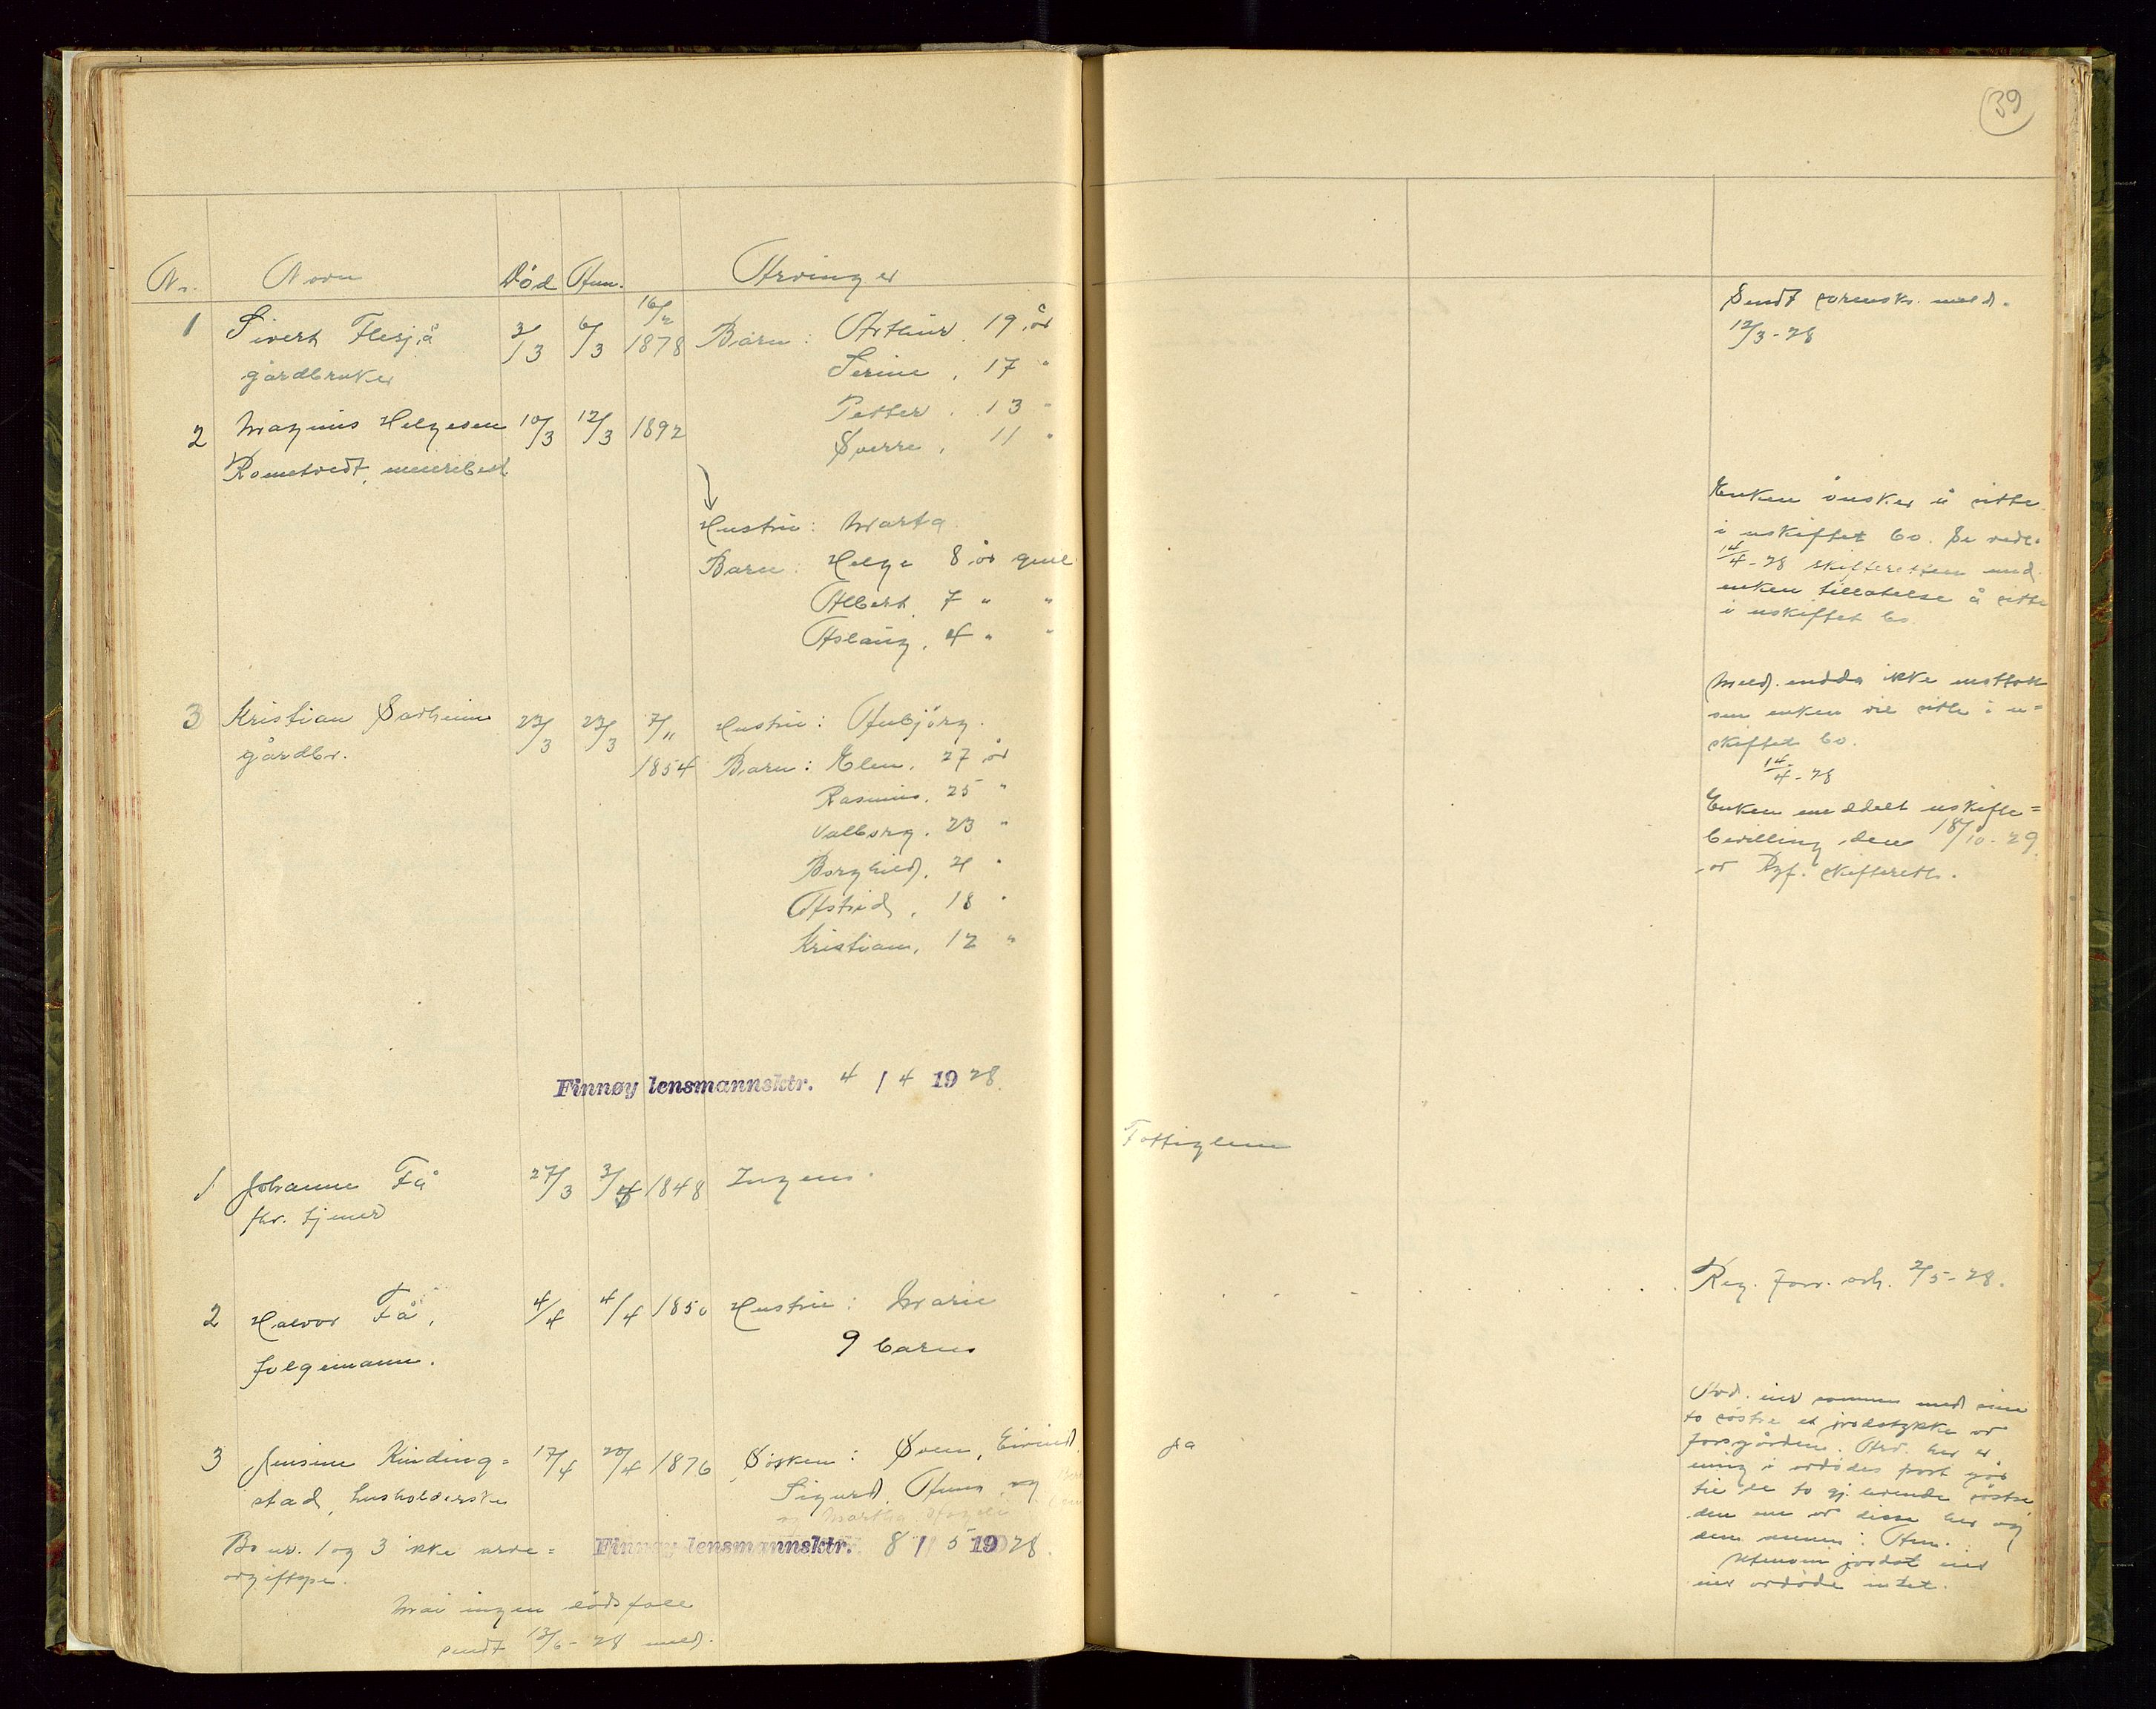 39
Nr. Navn Død Anm. Arvinger
1 Sivert Flesjå 3/3 6/3 16/2 1878 Barn: Arthur, 19 år
gårdbruker Serine, 17 "
Petter, 13 "
Sverre, 11 "
Sendt sorensk. meld.
12/3-28
2 Magnus Helgesen 10/3 12/3 1892
Rometvedt, meieribest
Hustru: Marta
Barn: Helge 8 år gml
Albert 7 " "
Aslaug, 4 " "
Enken ønsker å sitte
i uskiftet bo. Se vedl.
14/4-28 skifteretten med.
enken tillatelse å sitte
i uskiftet bo
3 Kristian Sørheim 23/3 23/3 7/11 Hustru: Anbjørg.
gårdbr. 1854 Barn: Elen. 27 år
Rasmus. 25 "
Valborg. 23 "
Borghild. 21 "
Astrid, 18 "
Kristian, 12 "
Meld. endda ikke mottatt
om enken vil sitte i u=
skiftet bo.
14/4-28
Enken meddelt uskifte=
bevilling den 18/10-29
av Ryf. skifterett.
Finnøy lensmannsktr. 4 / 4 1928.
1 Johanne Få 27/3 3/4 1848 Ingen. Fattiglem
fhv. tjener
2 Halvor Få, 4/4 4/4 1850 Hustru: Marie
folgemann. 9 barn
Reg. forr. 2/5-28.
3 Jensine Kinding= 17/4 20/4 1876 Søsken: Sven, Eivind
stad, husholderske Sigurd, Anna og
og Martha
ja
Avd. eier sammen med sine
to søstre et jordstykke av
farsgården. Arv. her er
enig i avdødes part går
til de to gj. levende søstre
den ene av disse her og
den annen: Am.
Utenom jordst eier
eier avdøde intet.
Bo nr. 1 og 3 ikke arve=
avgiftspl.
Finnøy lensmannsktr. 8 / 5 1928.
Mai ingen dødsfall
sendt 13/6-28 meld.